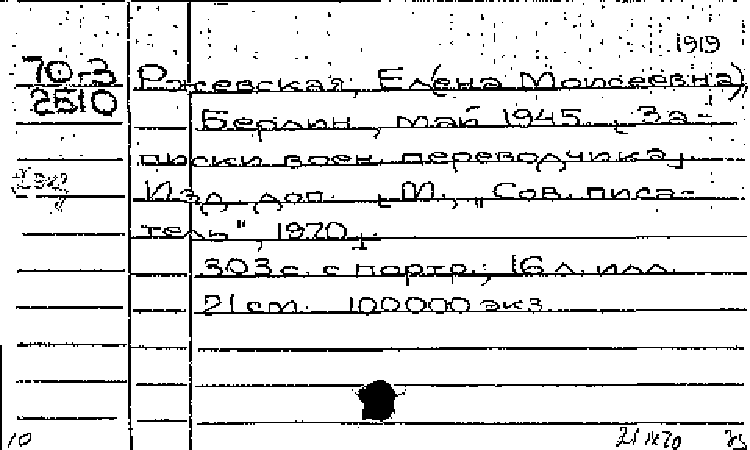 1919
70-3
2510
Ржевская, Елена Моисеевна)
Берлин, май 1945. [За-
писки воен. переводчика].
2 экз
Изд. доп. М., „Сов. писа-
тель", 1970.
303 с. с портр.; 16 л. илл.
21 см. 100000 экз
10